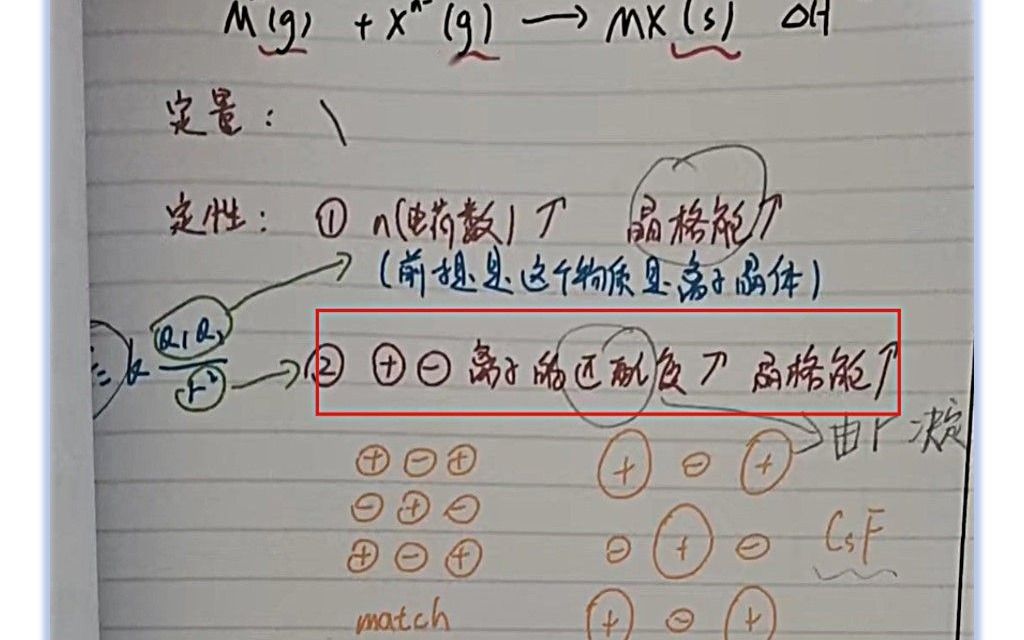 M(g) + Xⁿ⁻(g) → MX(s) ΔH
定量: \
定性: ① n(电荷数)↑ 晶格能↑
(前提是这个物质是离子晶体)
k Q₁Q₂/r²
② ⊕⊖离子的匹配度↑ 晶格能↑
由r决定
⊕⊖⊕ ⊕⊖⊕
⊖⊕⊖ ⊖⊕⊖ CsF
⊕⊖⊕
match ⊕⊖⊕